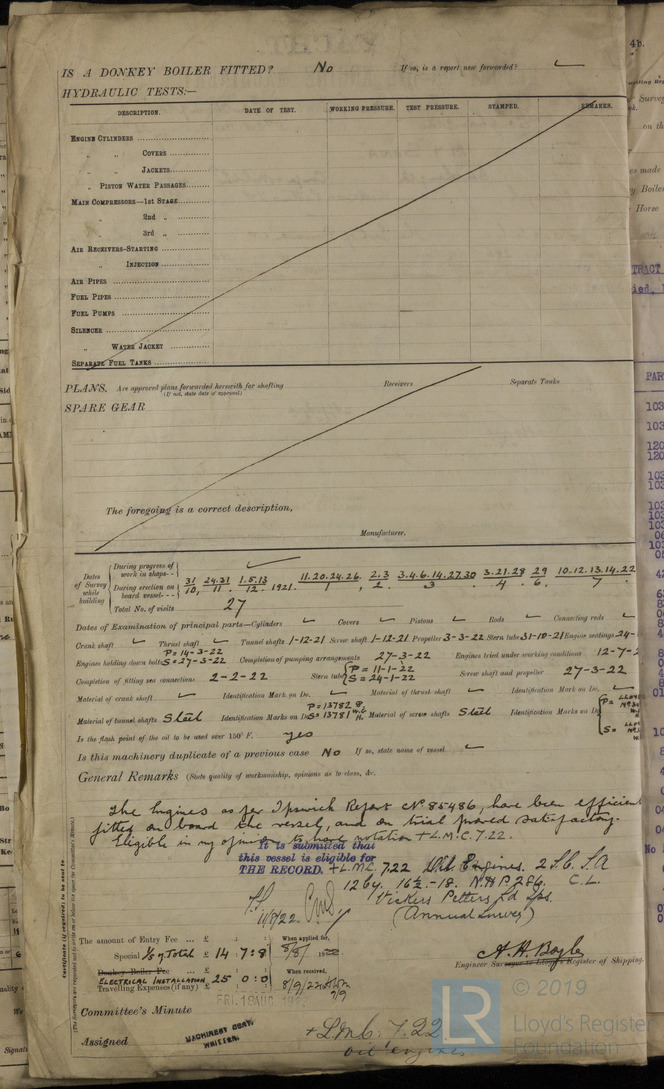 IS A DONKEY BOILER FITTED? No If so, is a report now forwarded? ✓
HYDRAULIC TESTS:—
DESCRIPTION. DATE OF TEST. WORKING PRESSURE. TEST PRESSURE. STAMPED. REMARKS.
ENGINE CYLINDERS
„ „ COVERS
„ „ JACKETS
„ PISTON WATER PASSAGES
MAIN COMPRESSORS—1st STAGE
„ 2nd „
„ 3rd „
AIR RECEIVERS—STARTING
„ INJECTION
AIR PIPES
FUEL PIPES
FUEL PUMPS
SILENCER
„ WATER JACKET
SEPARATE FUEL TANKS
PLANS. Are approved plans forwarded herewith for shafting Receivers Separate Tanks
(If not, state date of approval)
SPARE GEAR
The foregoing is a correct description,
Manufacturer.
Dates of Survey while building
During progress of work in shops - - ✓
During erection on board vessel - - - 31/10, 24.31/11. 1.5.13/12. 1921. 11.20.24.26./1, 2.3/2. 3.4.6.14.27.30/3 3.21.28/4 29/6. 10.12.13.14.22/7.
Total No. of visits 27
Dates of Examination of principal parts—Cylinders ✓ Covers ✓ Pistons ✓ Rods ✓ Connecting rods ✓
Crank shaft ✓ Thrust shaft ✓ Tunnel shafts 1-12-21 Screw shaft 1-12-21 Propeller 3-3-22 Stern tube 31-10-21 Engine seatings 24-
Engines holding down bolts P = 14-3-22 S = 27-3-22 Completion of pumping arrangements 27-3-22 Engines tried under working conditions 12-7-2
Completion of fitting sea connections 2-2-22 Stern tube P = 11-1-22 S = 24-1-22 Screw shaft and propeller 27-3-22
Material of crank shaft ✓ Identification Mark on Do. ✓ Material of thrust shaft ✓ Identification Mark on Do. ✓
Material of tunnel shafts Steel Identification Marks on Do. P = 13782 S = 13781 Material of screw shafts Steel Identification Marks on Do. P = S =
Is the flash point of the oil to be used over 150° F. yes
Is this machinery duplicate of a previous case No If so, state name of vessel ✓
General Remarks (State quality of workmanship, opinions as to class, &c.
The Engines as per Ipswich Report No 85486, have been efficien
fitted on board the vessel, and on trial proved satisfactory.
Eligible in my opinion to have notation + L.M.C. 7.22.
It is submitted that
this vessel is eligible for
THE RECORD. + L.M.C. 7.22 Oil Engines. 2 S.C. S.A
12 Cy. 16½ - 18. N.H.P. 286. C.L.
Vickers Petters Ld Ips.
(Annual Survey)
11/8/22
The amount of Entry Fee ... £ : : When applied for,
Special £ 14 : 7 : 8 8/8/ 1922
Donkey Boiler Fee
ELECTRICAL INSTALLATION £ 25 : 0 : 0 When received,
Travelling Expenses (if any) £ 8/9/22
A. H. Boyle
Engineer Surveyor to Lloyd's Register of Shipping.
Committee's Minute FRI. 18 AUG
Assigned + L.M.C. 7.22
oil engines
MACHINERY CERT.
WRITTEN.
LR
© 2019
Lloyd's Register
Foundation